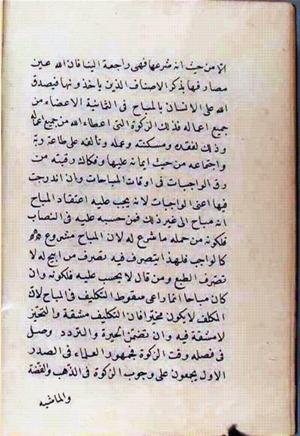 الا من حيث انه شرعها فهى راجعة الينا فان الله عين
مصارفها بذكر الاصناف الذين ياخذونها فيصدق
الله على الانسان بالمباح فى الثمانية الاعضاء من
جميع اعماله فذلك الزكوة التى اعطاه الله من جميع اعماله
وذلك لفقره ومسكنته وعمله وتالفه على طاعة ربه
واجتماعه من حيث ايمانه عليها وفكاك رقبته من
رق الواجبات فى اوقات المباحات وان اندرجت
فيها اعنى الواجبات لانه يجب عليه اعتقاد المباح
انه مباح الى غير ذلك فمن حسبه عليه فى النصاب
فلكونه من جملة ما شرع له لان المباح مشروع
كالواجب فلهذا يتصرف فيه تصرف من ابيح له لا
تصرف الطبع ومن قال لا يحسب عليه فلكونه وان
كان مباحا انما راعى سقوط التكليف فى المباح لان
المكلف لا يكون مخيرا فان التكليف مشقة والتخيير
لا مشقة فيه وان تضمن الحيرة والتردد وصل
فى فصله وقت الزكوة فجمهور العلماء فى الصدر
الاول يجمعون على وجوب الزكوة فى الذهب والفضة
والماشيه